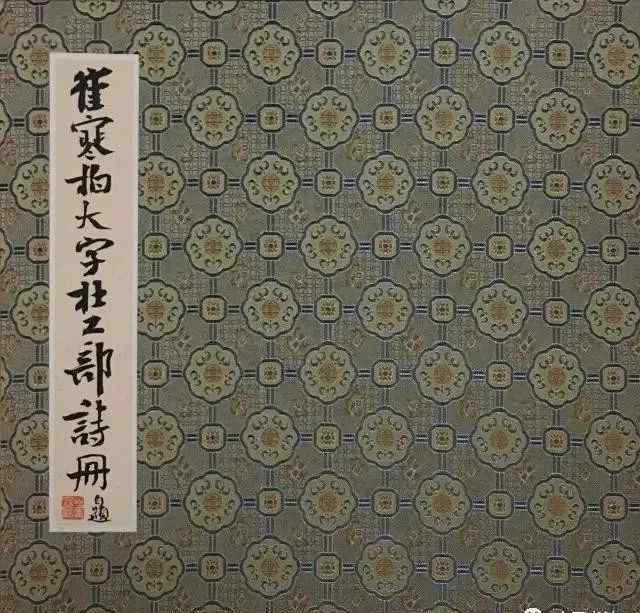 崔寒柏大字杜工部詩冊
自題